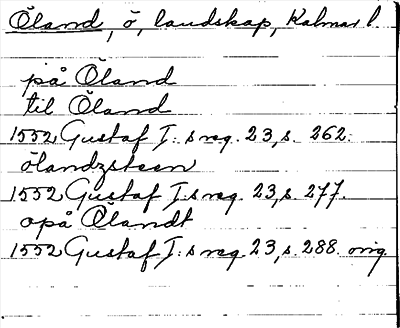 Öland, ö, landskap, Kalmar l.
på Öland
til Öland
1552 Gustaf I:s reg. 23, s. 262.
ölandzsteen
1552 Gustaf I:s reg. 23, s. 277.
opå Ölandt
1552 Gustaf I:s reg. 23, s. 288. orig.